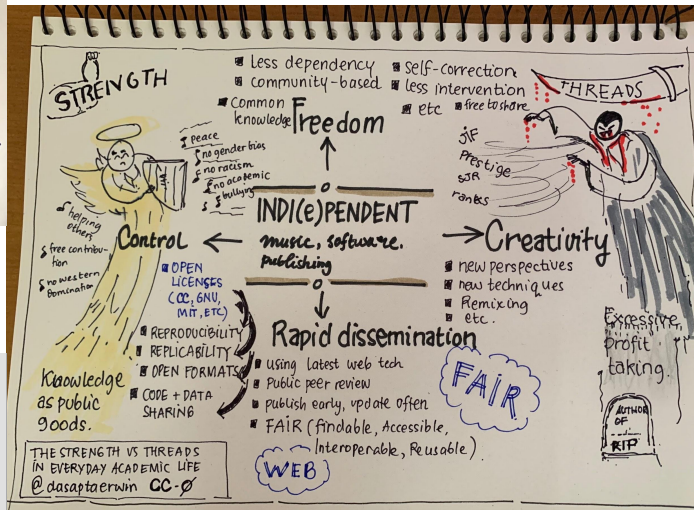 STRENGTH
Less dependency
community-based
Common
knowledge
self-correction
less intervention
etc
free to share
THREADS
Freedom
peace
no gender bias
no racism
no academic
bullying
helping
others
free contribu-
tion
no western
domination
INDI(e)PENDENT
music, software,
publishing
Control
OPEN
LICENSES
(CC, GNU,
MIT, ETC)
REPRODUCIBILITY
REPLICABILITY
OPEN FORMATS
CODE + DATA
SHARING
jIF
Prestige
SJR
ranks
Creativity
new perspectives
new techniques
Remixing
etc.
Rapid dissemination
using latest web tech
Public peer review
publish early, update often
FAIR (findable, Accessible,
Interoperable, Reusable)
FAIR
WEB
Excessive
profit
taking.
AUTHOR
OF
RIP
Knowledge
as public
goods.
THE STRENGTH VS THREADS
IN EVERYDAY ACADEMIC LIFE
@dasaptaerwin CC-0